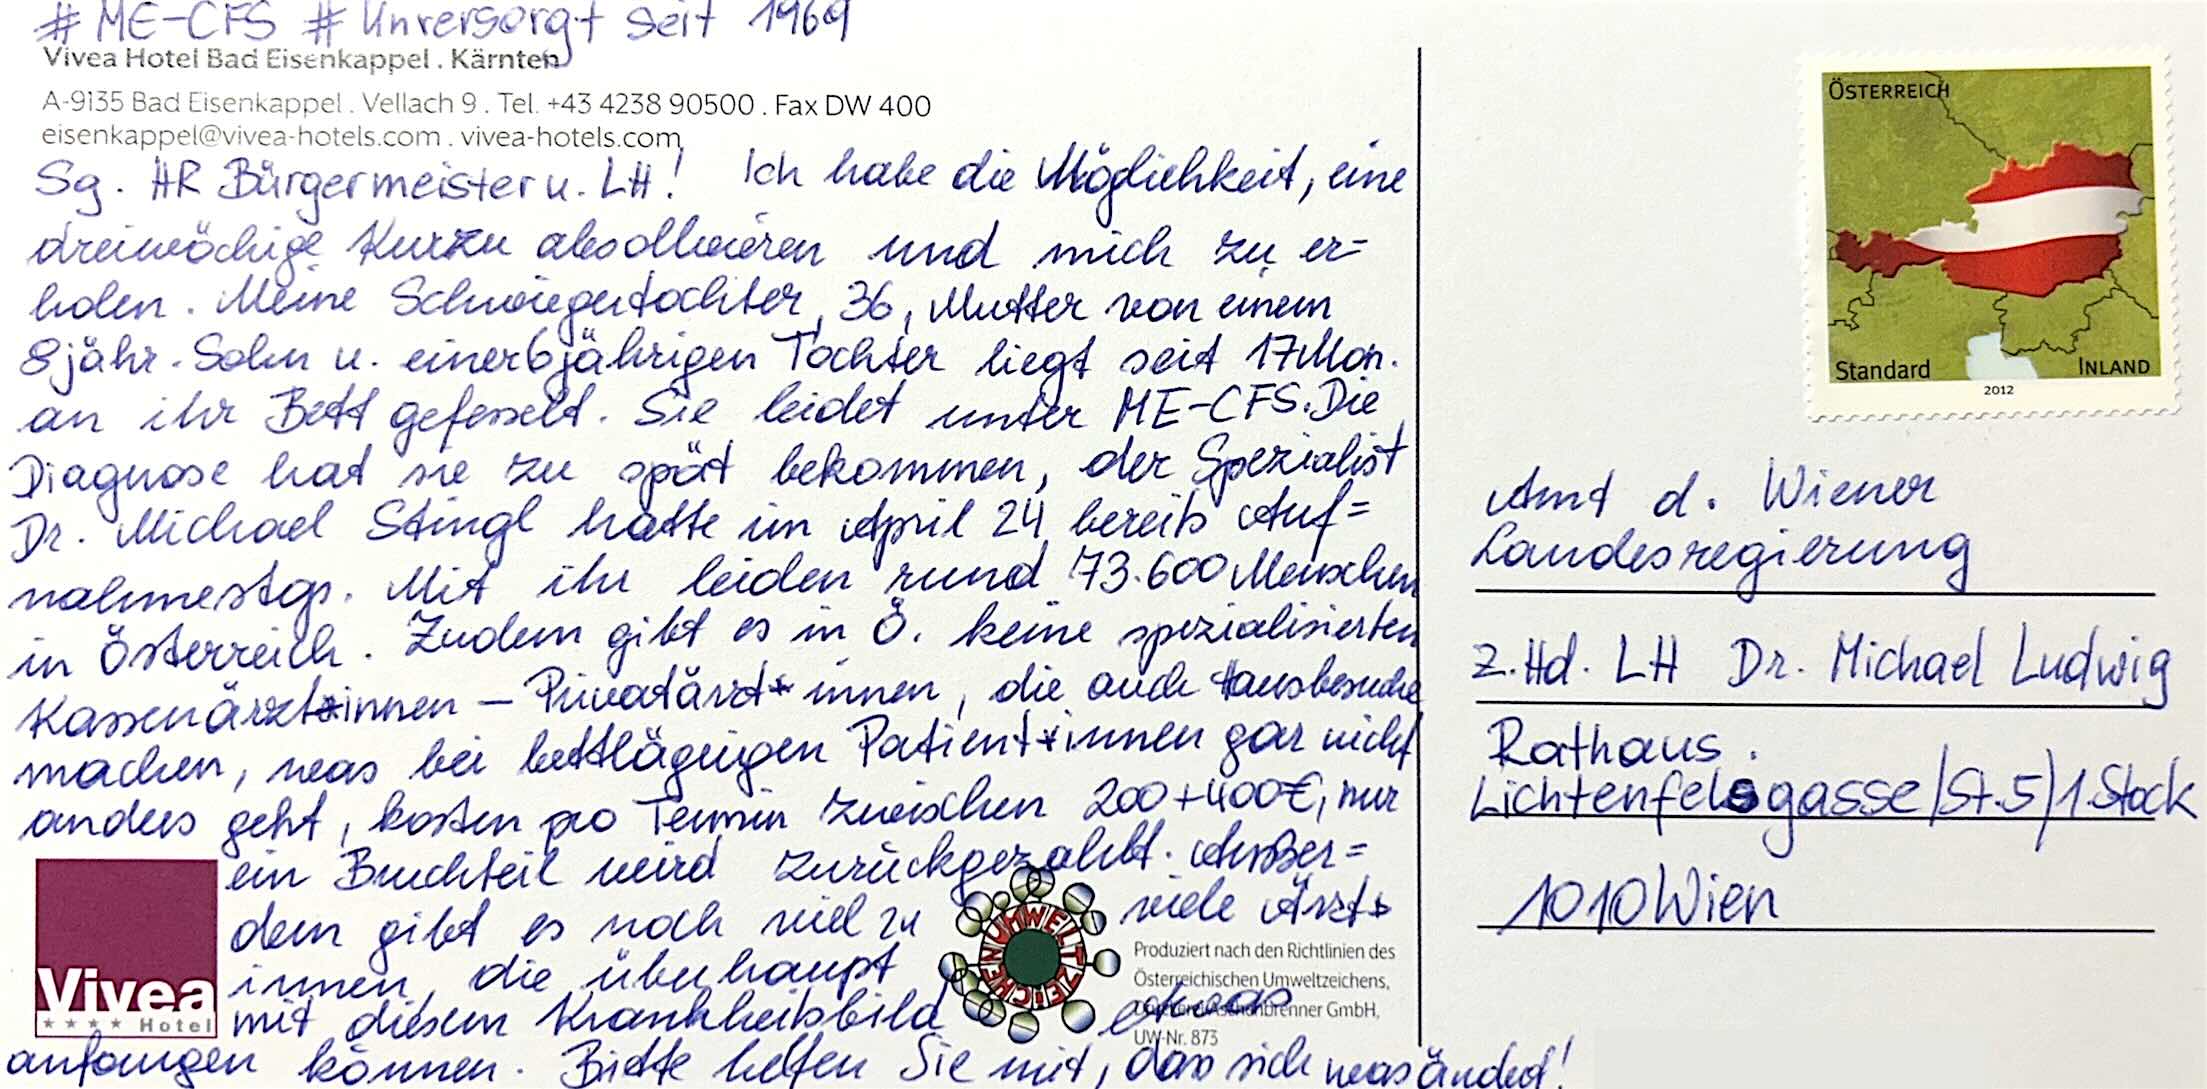 # ME-CFS # Unversorgt seit 1969
Vivea Hotel Bad Eisenkappel . Kärnten
A-9135 Bad Eisenkappel . Vellach 9 . Tel. +43 4238 90500 . Fax DW 400
eisenkappel@vivea-hotels.com . vivea-hotels.com
Sg. HR Bürgermeister u. LH! Ich habe die Möglichkeit, eine
dreiwöchige Kur zu absolvieren und mich zu er=
holen. Meine Schwiegertochter, 36, Mutter von einem
8jähr. Sohn u. einer 6jährigen Tochter liegt seit 17 Mon.
an ihr Bett gefesselt. Sie leidet unter ME-CFS. Die
Diagnose hat sie zu spät bekommen, der Spezialist
Dr. Michael Stingl hatte im April 24 bereits Auf=
nahmestop. Mit ihr leiden rund 73.600 Menschen
in Österreich. Zudem gibt es in Ö. keine spezialisierten
Kassenärzt*innen – Privatärzt*innen, die auch Hausbesuche
machen, was bei bettlägrigen Patient*innen gar nicht
anders geht, kosten pro Termin zwischen 200+400€, nur
ein Bruchteil wird zurückgezahlt. Außer=
dem gibt es noch viel zu viele Ärzt*
innen, die überhaupt
mit diesem Krankheitsbild etwas
anfangen können. Bitte helfen Sie mit, dass sich was ändert!
Vivea
★★★★ Hotel
UMWELTZEICHEN
Produziert nach den Richtlinien des
Österreichischen Umweltzeichens,
Druckerei Aschenbrenner GmbH,
UW-Nr. 873
ÖSTERREICH
Standard
INLAND
2012
Amt d. Wiener
Landesregierung
z.Hd. LH Dr. Michael Ludwig
Rathaus.
Lichtenfelsgasse/St.5/1.Stock
1010 Wien